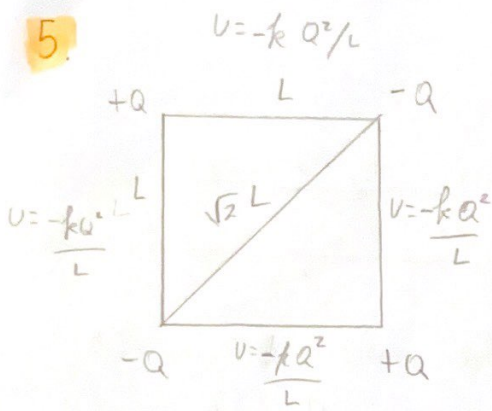 5.
U=-k Q²/L
+Q
L
-Q
U= -kQ²/L
L
√2 L
U=-kQ²/L
-Q
U=-kQ²/L
+Q